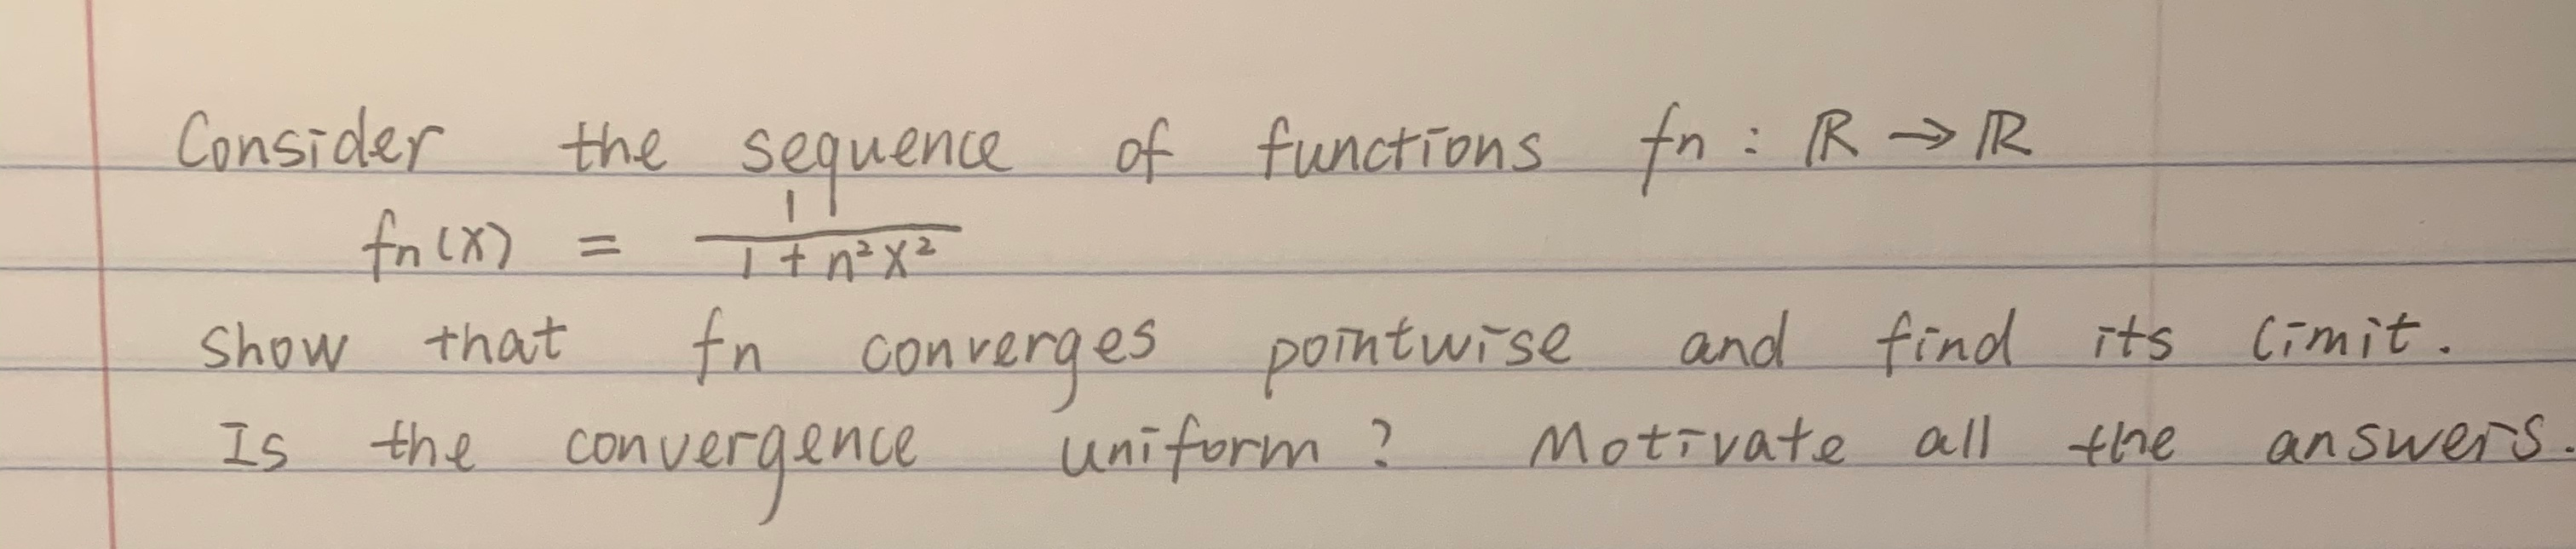 Consider the sequence of functions fn : ℝ → ℝ
fn(x) = 1 / (1 + n²x²)
show that fn converges pointwise and find its limit.
Is the convergence uniform? Motivate all the answers.